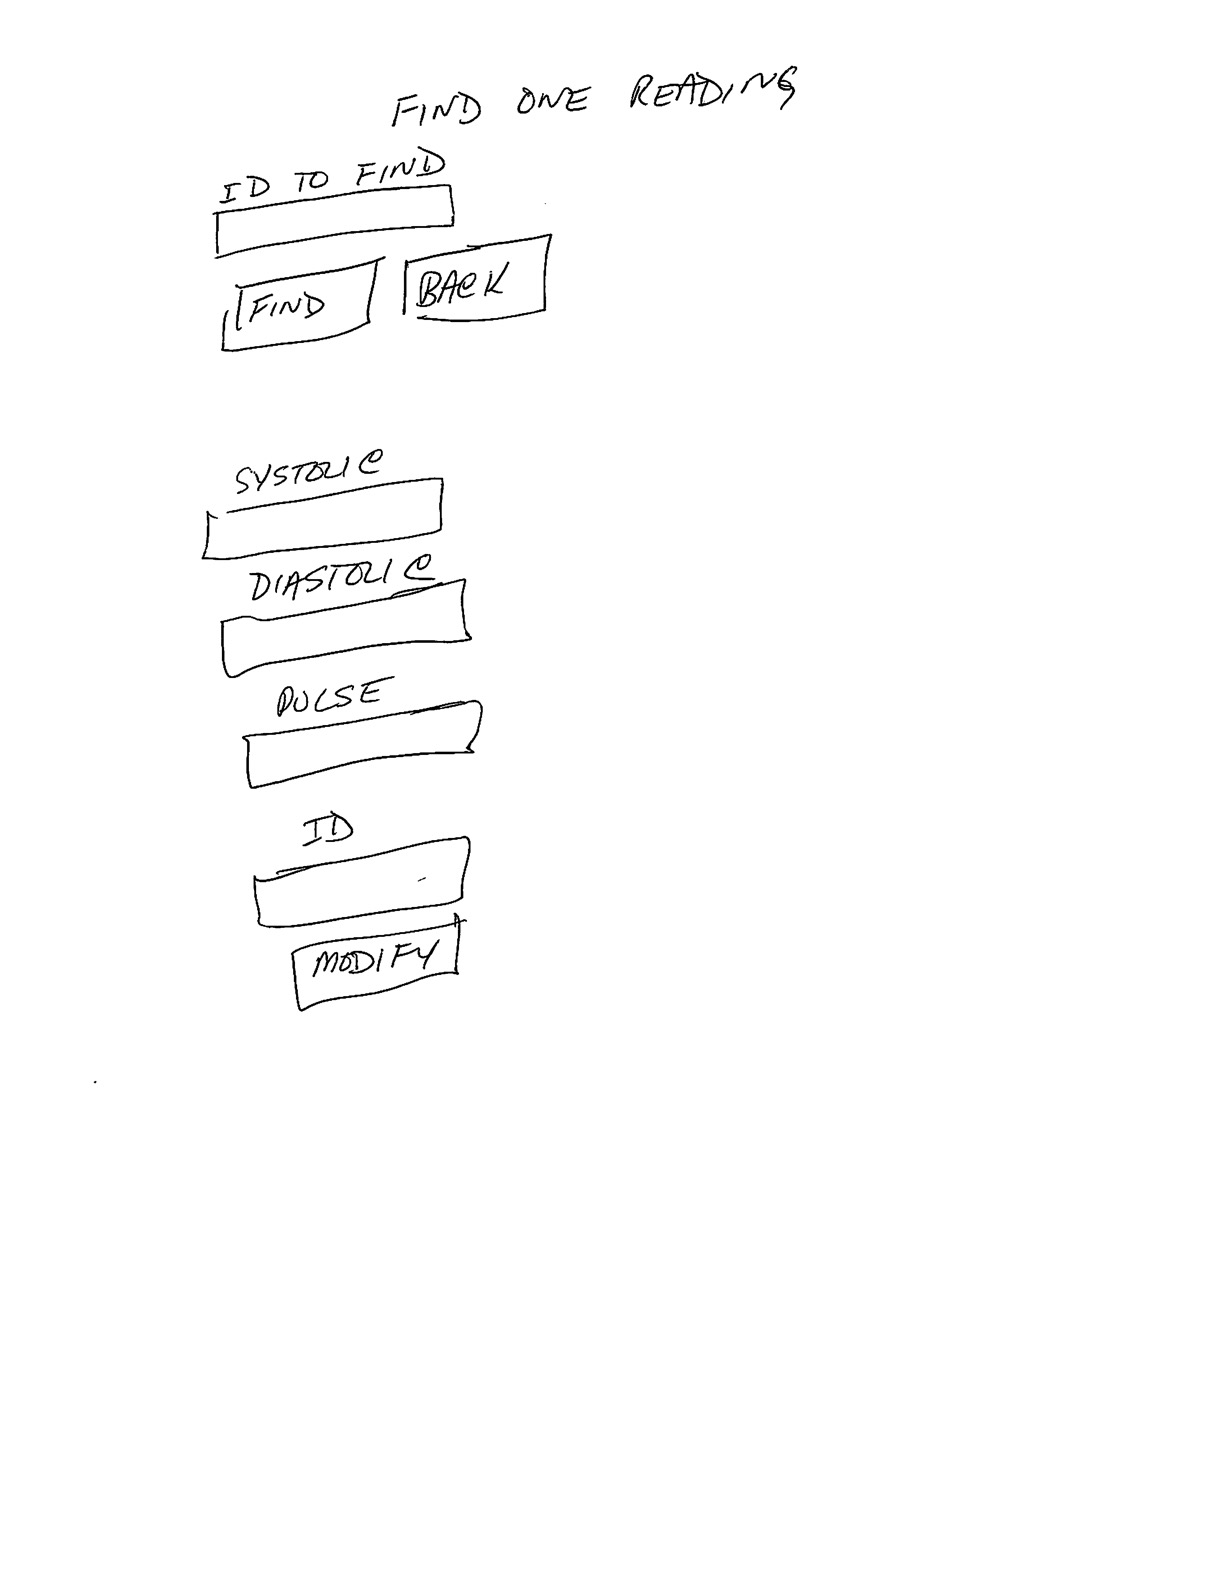 FIND ONE READING
ID TO FIND
FIND BACK
SYSTOLIC
DIASTOLIC
PULSE
ID
MODIFY